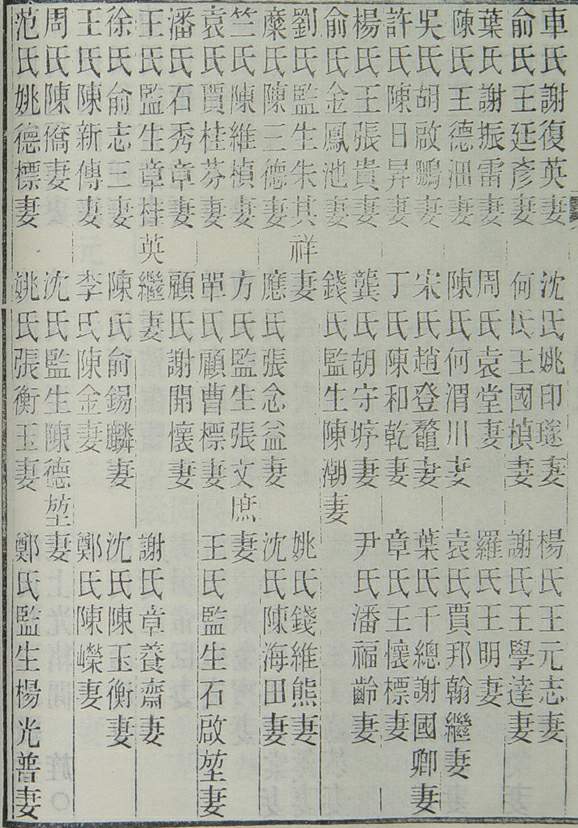 車氏謝復英妻 沈氏姚印璲妻 楊氏王元志妻
俞氏王延彥妻 何氏王國楨妻 謝氏王學達妻
葉氏謝振雷妻 周氏袁堂妻 羅氏王明妻
陳氏王德沺妻 陳氏何渭川妻 袁氏賈邦翰繼妻
吳氏胡啟鵬妻 宋氏趙登鼇妻 葉氏千總謝國卿妻
許氏陳日昇妻 丁氏陳和乾妻 章氏王懷標妻
楊氏王張貴妻 龔氏胡守埻妻 尹氏潘福齡妻
俞氏金鳳池妻 錢氏監生陳潮妻
劉氏監生朱其祥妻 姚氏錢維熊妻
糜氏陳三德妻 應氏張念益妻 沈氏陳海田妻
竺氏陳維楨妻 方氏監生張文庶妻
袁氏賈桂芬妻 單氏顧曹標妻 王氏監生石啟堃妻
潘氏石秀章妻 顧氏謝開懷妻
王氏監生章桂英繼妻 謝氏章養齋妻
徐氏俞志三妻 陳氏俞錫麟妻 沈氏陳玉衡妻
王氏陳新傳妻 李氏陳金妻 鄭氏陳嶸妻
周氏陳僑妻 沈氏監生陳德堃妻
范氏姚德標妻 姚氏張衡玉妻 鄭氏監生楊光普妻